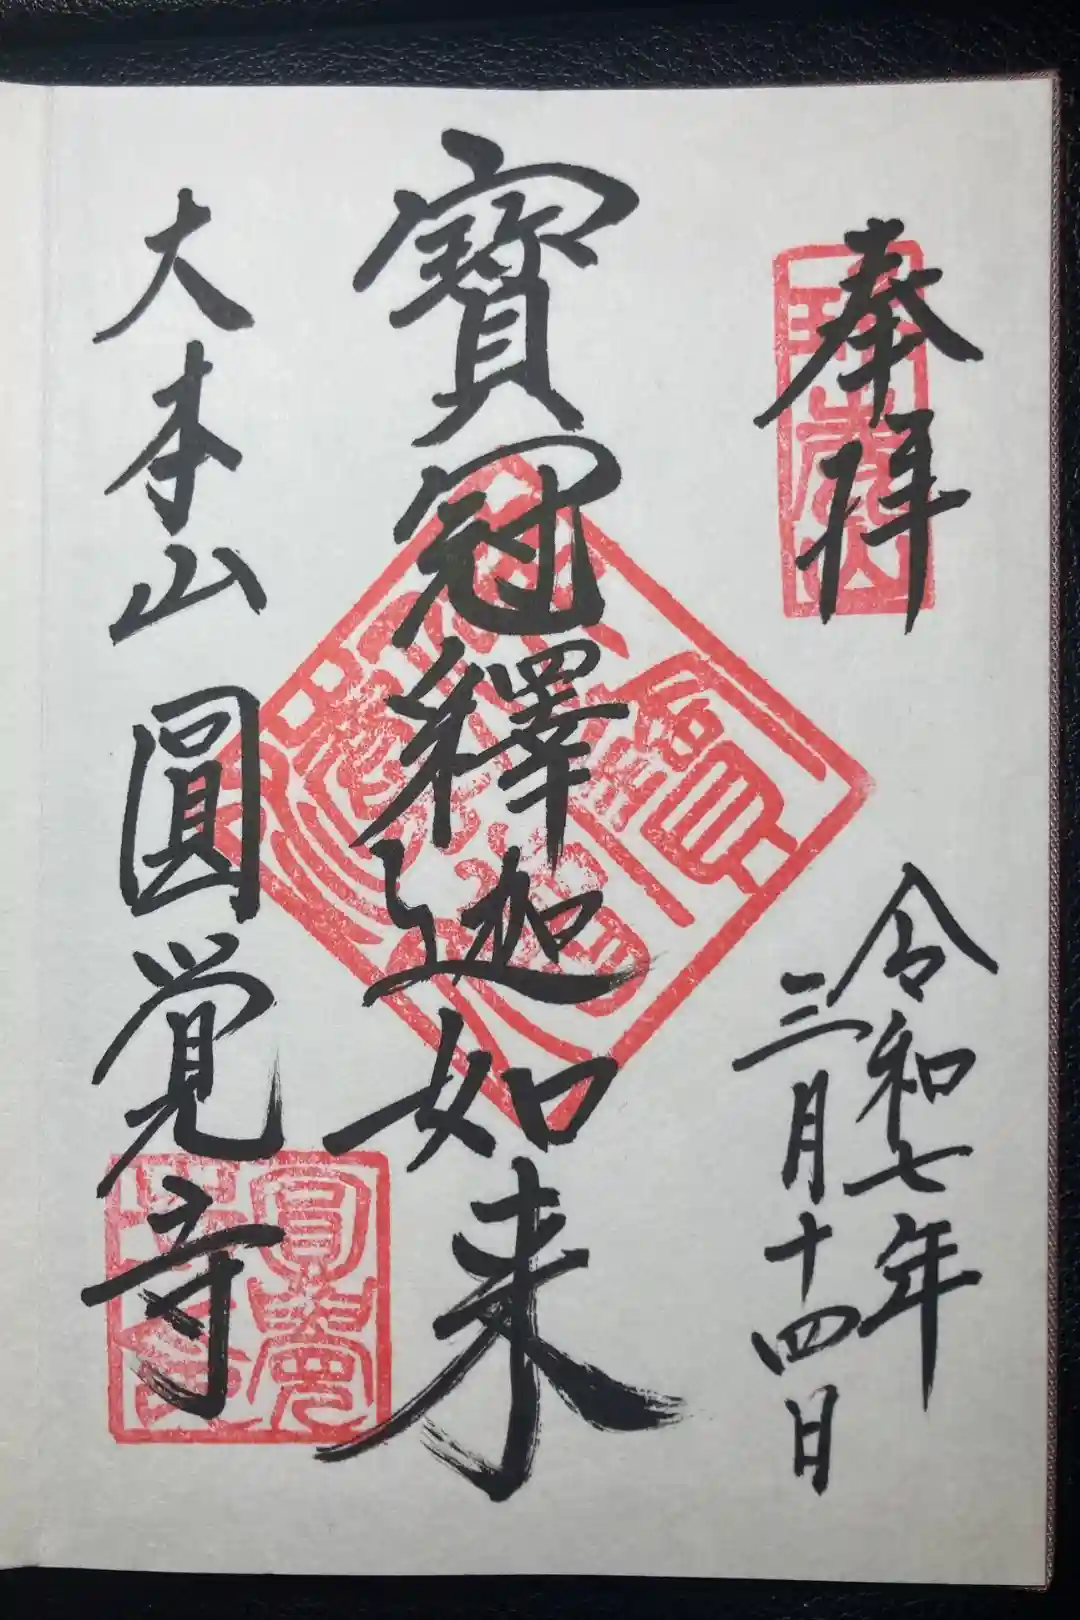 奉拝
令和七年
三月十四日
寶冠釋迦如来
大本山 圓覚寺
瑞鹿山